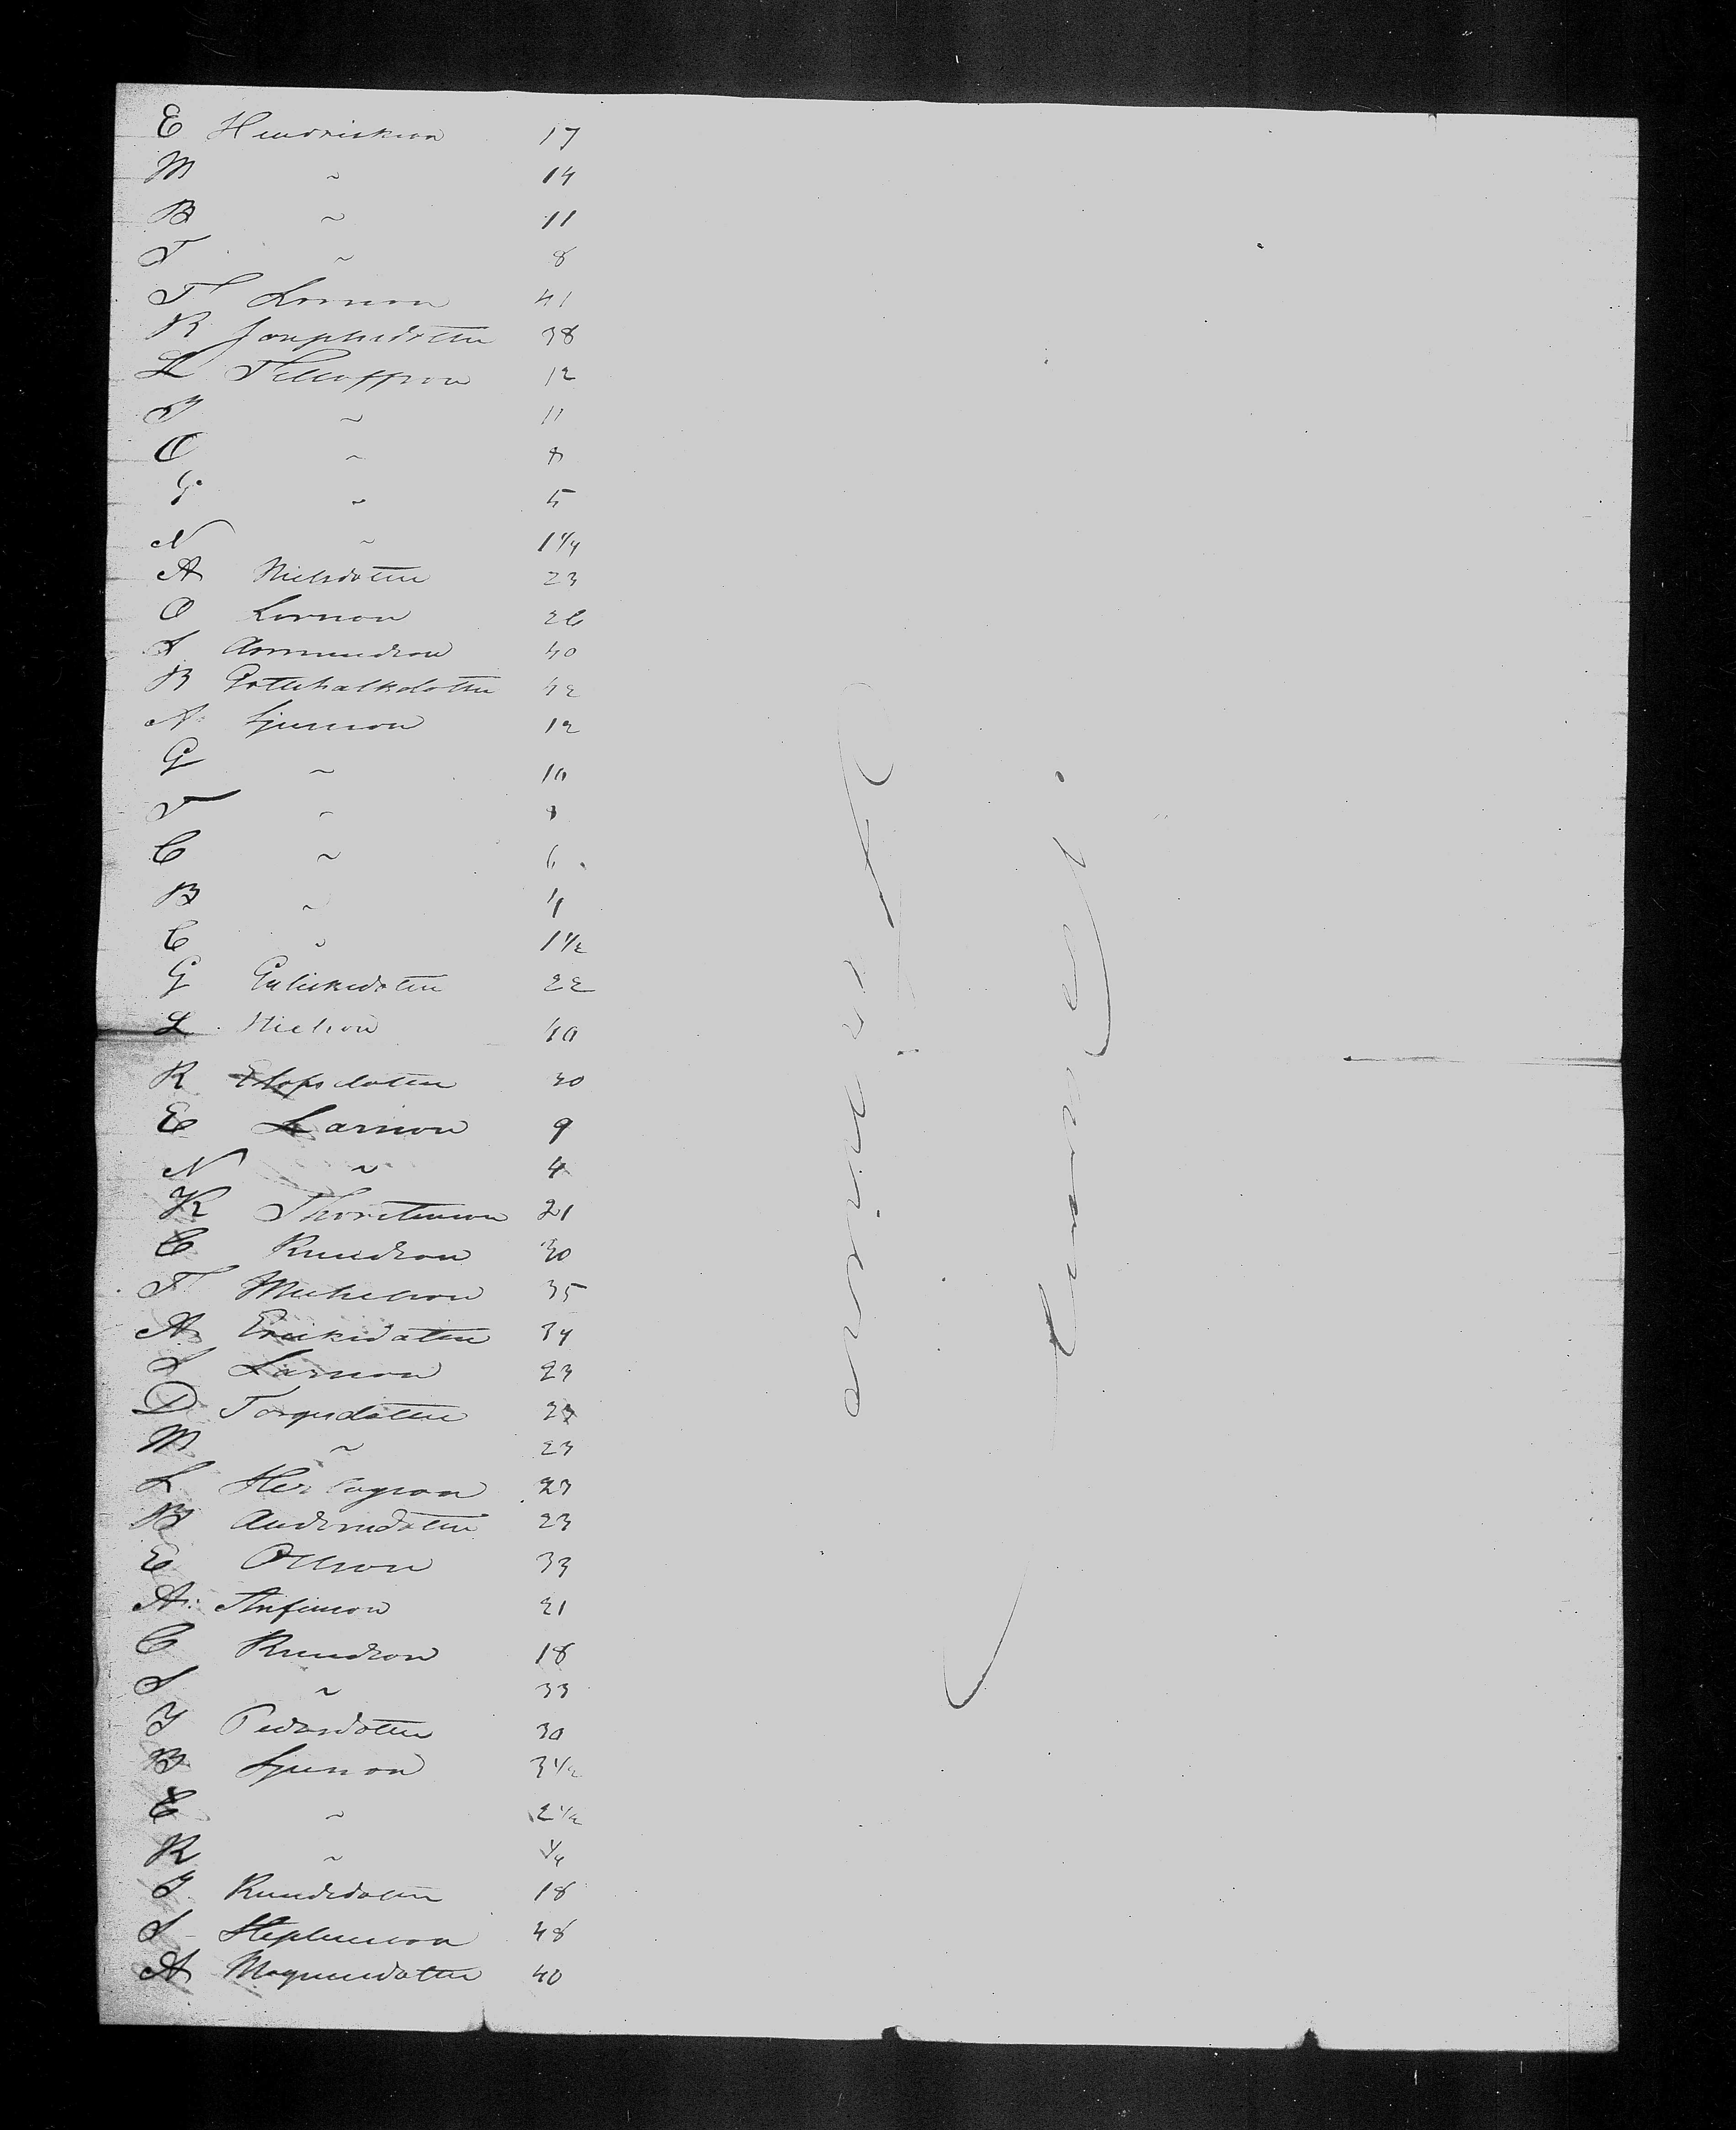 E Hendrickson 17
M ~ 14
B ~ 11
T ~ 8
T Larson 41
R Josephsdatter 38
L Tellefsson 12
T ~ 11
O ~ 8
G ~ 5
N ~ 1 1/4
A Nielsdatter 23
O Larson 26
S Asmundson 40
B Gottschalksdatter 42
N Sjurson 12
G ~ 10
T ~ 8
C ~ 6
B ~ 4
C ~ 1 1/2
G Guliksdatter 22
L Nielson 40
R Elofsdatter 30
E Larson 9
N ~ 4
K Thorstenson 21
C Knudson 30
T Michelson 35
A Eriksdatter 34
L Larson 23
D Torgusdatter 23
M ~ 23
L Herlogson 23
B Andersdatter 23
E Olson 33
A Anfinson 21
C Knudson 18
S ~ 33
I Pedersdatter 30
B Sjurson 3 1/2
E ~ 2 1/2
R ~ 1/4
I Knudsdatter 18
S Stephenson 48
A Magnusdatter 40